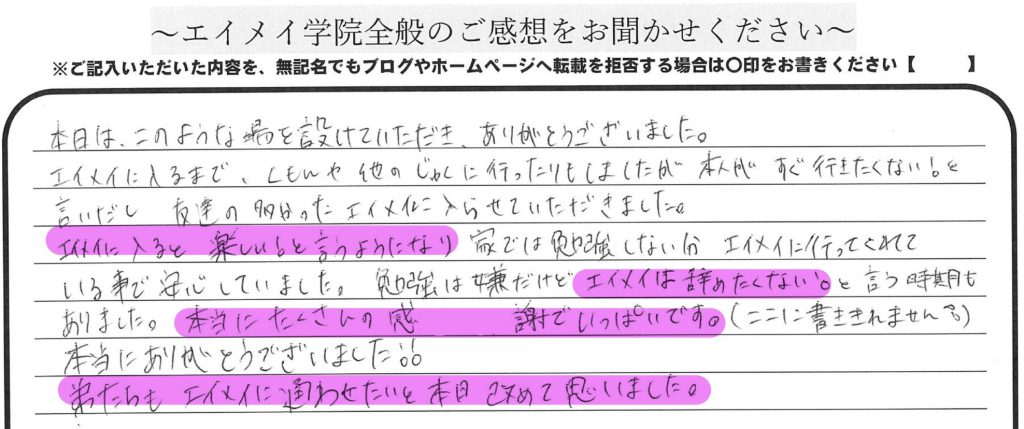 ～エイメイ学院全般のご感想をお聞かせください～
※ご記入いただいた内容を、無記名でもブログやホームページへ転載を拒否する場合は〇印をお書きください【　　　】
本日は、このような場を設けていただき、ありがとうございました。
エイメイに入るまで、くもんや他のじゅくに行ったりもしましたが 本人が すぐ行きたくない!と
言いだし 友達の多かったエイメイに入らせていただきました。
エイメイに入ると 楽しい!と言うようになり 家では勉強しない分 エイメイに行ってくれて
いる事で安心していました。勉強は嫌だけど エイメイは辞めたくない。と言う時期も
ありました。本当にたくさんの感　　謝でいっぱいです。(ここに書ききれません)
本当にありがとうございました!!
弟たちも エイメイに通わせたいと本日 改めて思いました。